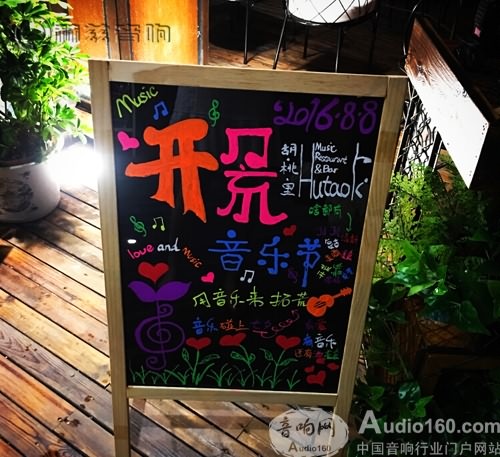 Music
2016·8·8
开荒
胡桃里
Music
Restaurant
& Bar
Hutaoli
love and Music
音乐节
用音乐来拓荒
音乐碰上
有音乐
还有
音响网
Audio160
Audio160.com
中国音响行业门户网站